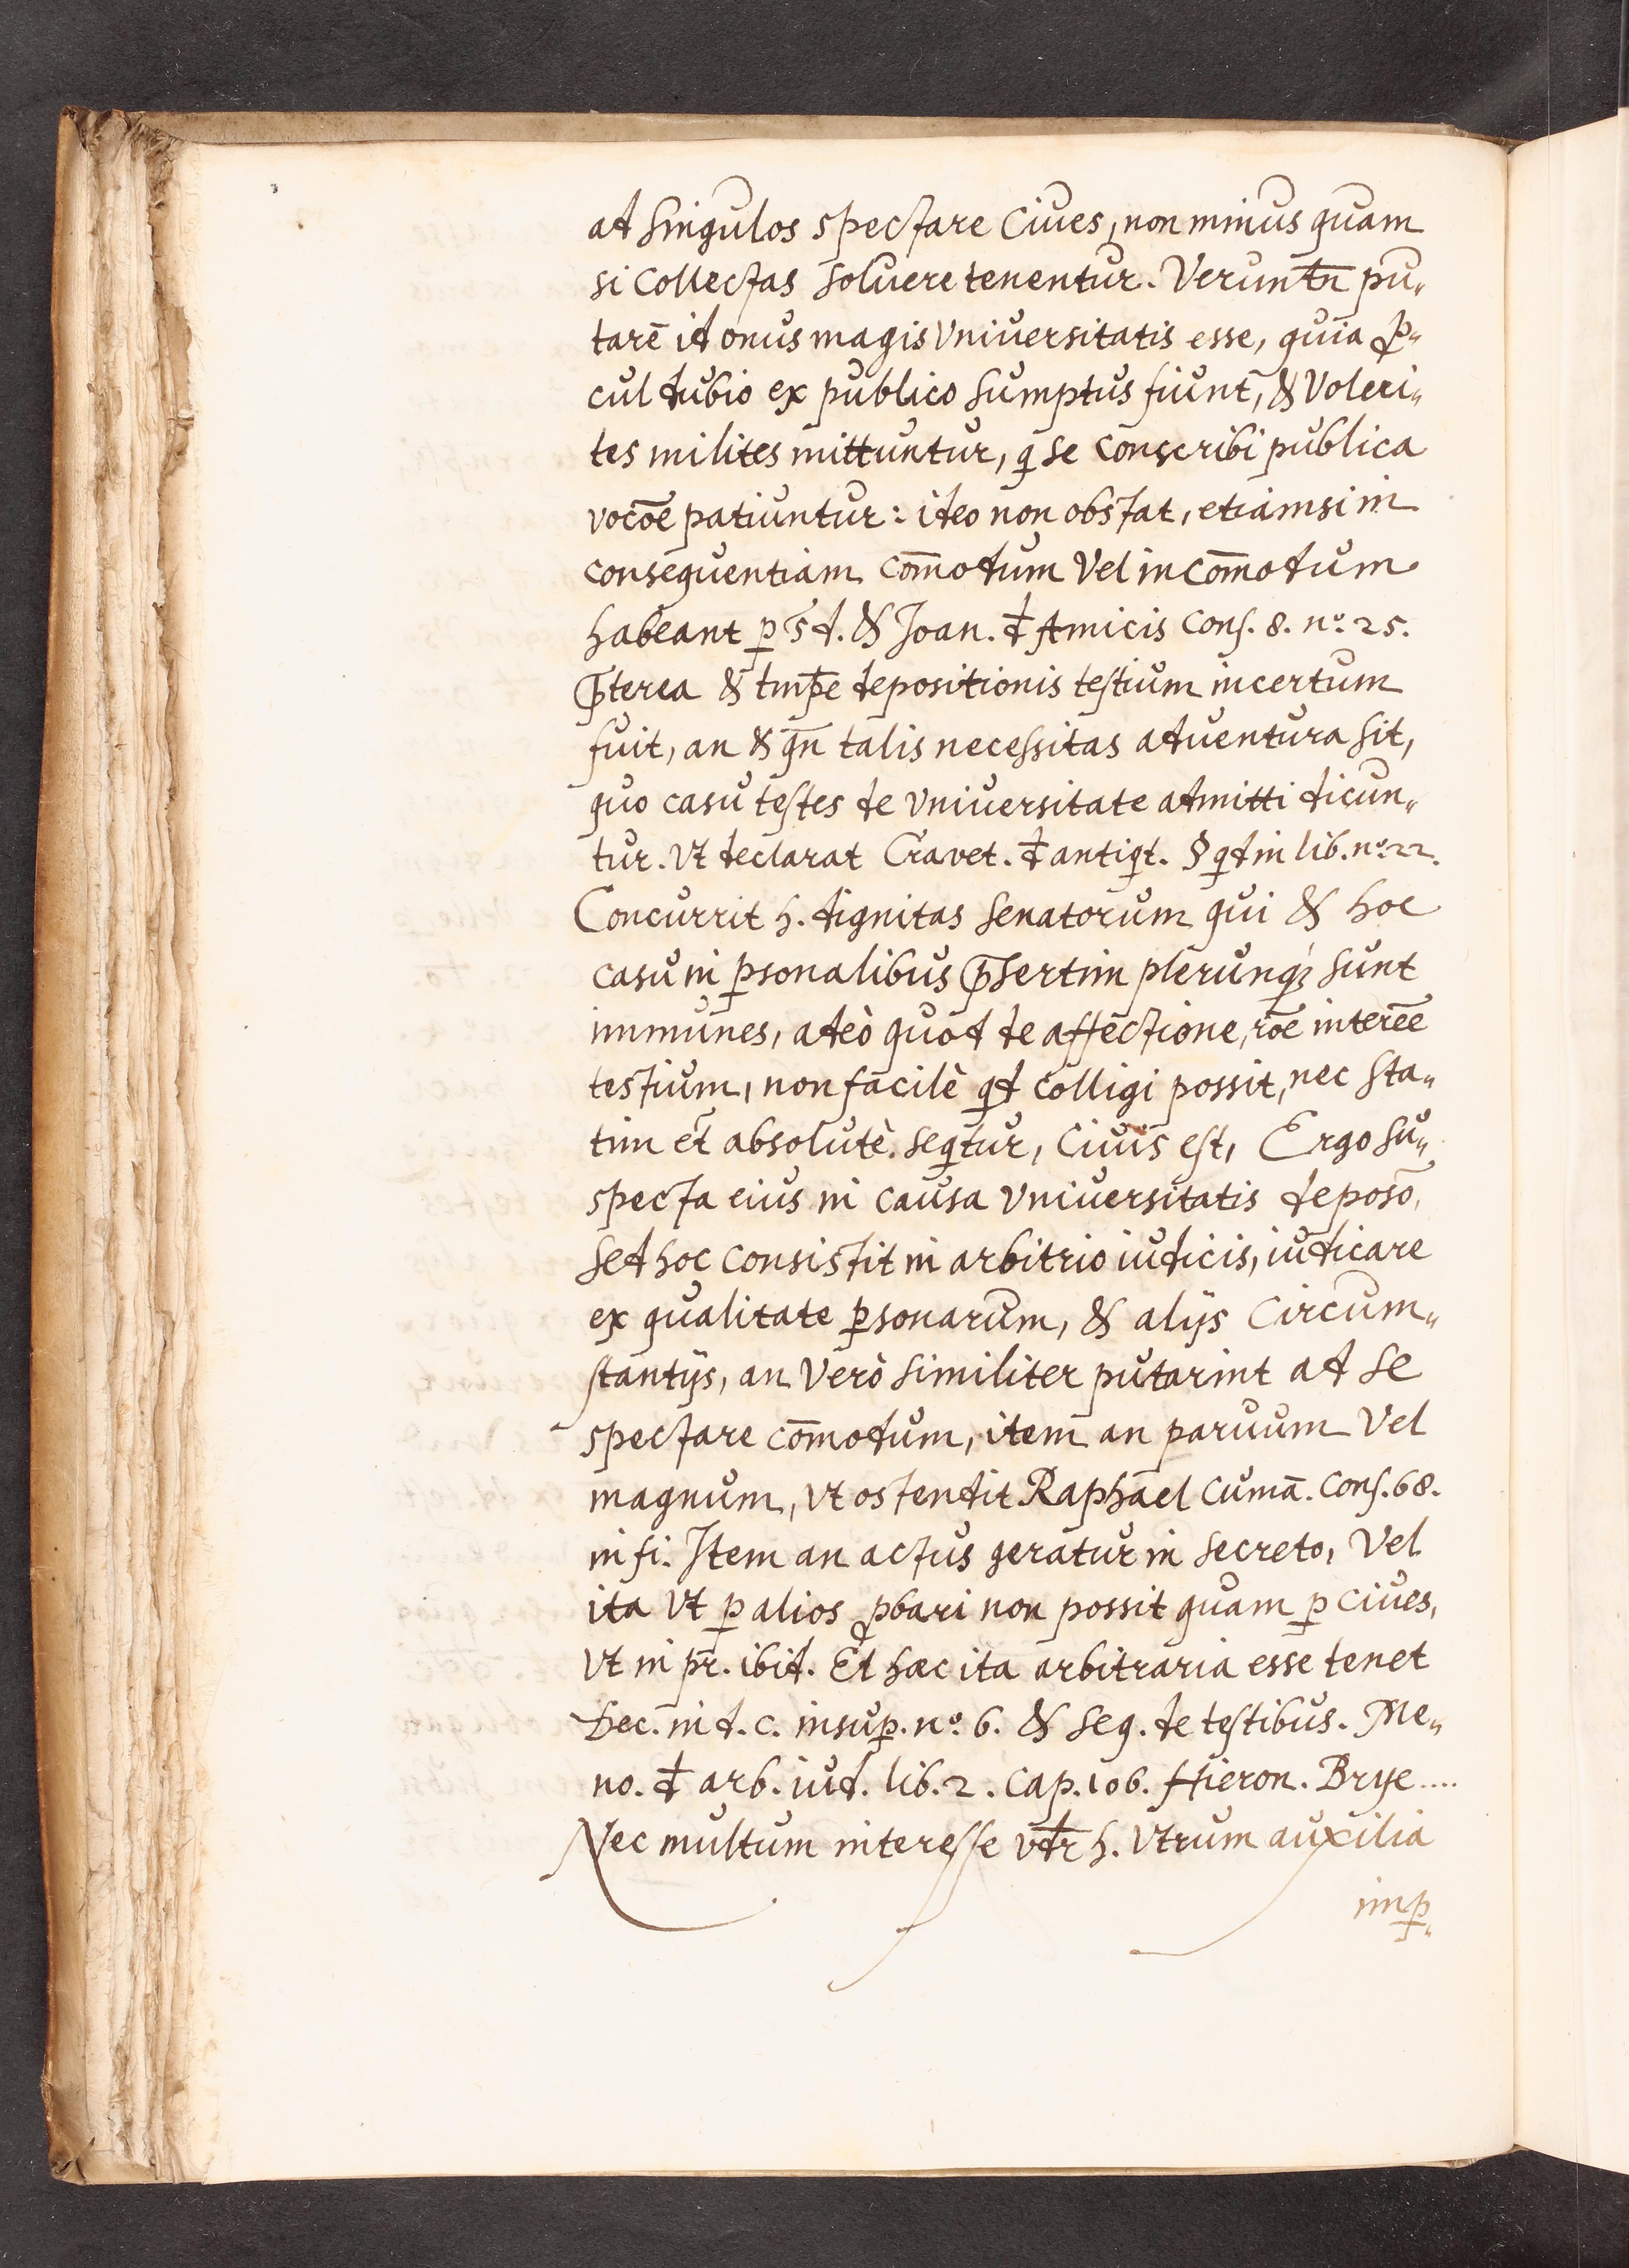 ad singulos spectare Ciues, non minus quam
si Collectas soluere tenentur. Veruntn̄ pu„
tarē id onus magis Vniuersitatis esse, quia ꝓ„
cul dubio ex publico sumptus fiunt, & Volen„
tes milites mittuntur, q̨ se conscribi publica
vocōe patiuntur: ideo non obstat, etiamsi in
consequentiam com̄odum Vel incom̄odum
habeant ꝑ s̄d. & Joan. đ Amicis Cons. 8. nº. 25.
P̄terea & tmp̄e depositionis testium incertum
fuit, an & qn̄ talis necessitas aduentura sit,
quo casu testes de Vniuersitate admitti dicun„
tur. Vt declarat Cravet. đ antiq̨t. § q̨d in lib. nº. 22.
Concurrit h. dignitas Senatorum qui & hoc
casu in ꝑsonalibus p̄sertim plerunq́ꝫ sunt
immunes, adeò quod de affectione, rōe interēe
testium, non facilè q̨d colligi possit, nec sta„
tim et̄ absolutè. seq̨tur, Ciuis est, Ergo su„
specta eius in causa Vniuersitatis deposō,
sed hoc consistit in arbitrio iudicis, iudicare
ex qualitate ꝑsonarum, & alijs Circum„
stantijs, an Verò similiter putarint ad se
spectare com̄odum, item an paruum Vel
magnum, Vt ostendit Raphael Cumā. Cons. 68.
in fi. Item an actus geratur in secreto, Vel
ita Vt ꝑ alios ꝓbari non possit quam ꝑ Ciues,
Vt in pr̄. ibid. Et hæc ita arbitraria esse tenet
Dec. in d. c. insuꝑ. nº. 6. & seq. de testibus. Me„
no. đ arb. iud. lib. 2. cap. 106. Hieron. Brye....
Nec multum interesse vđr h. Vtrum auxilia
imꝑ„